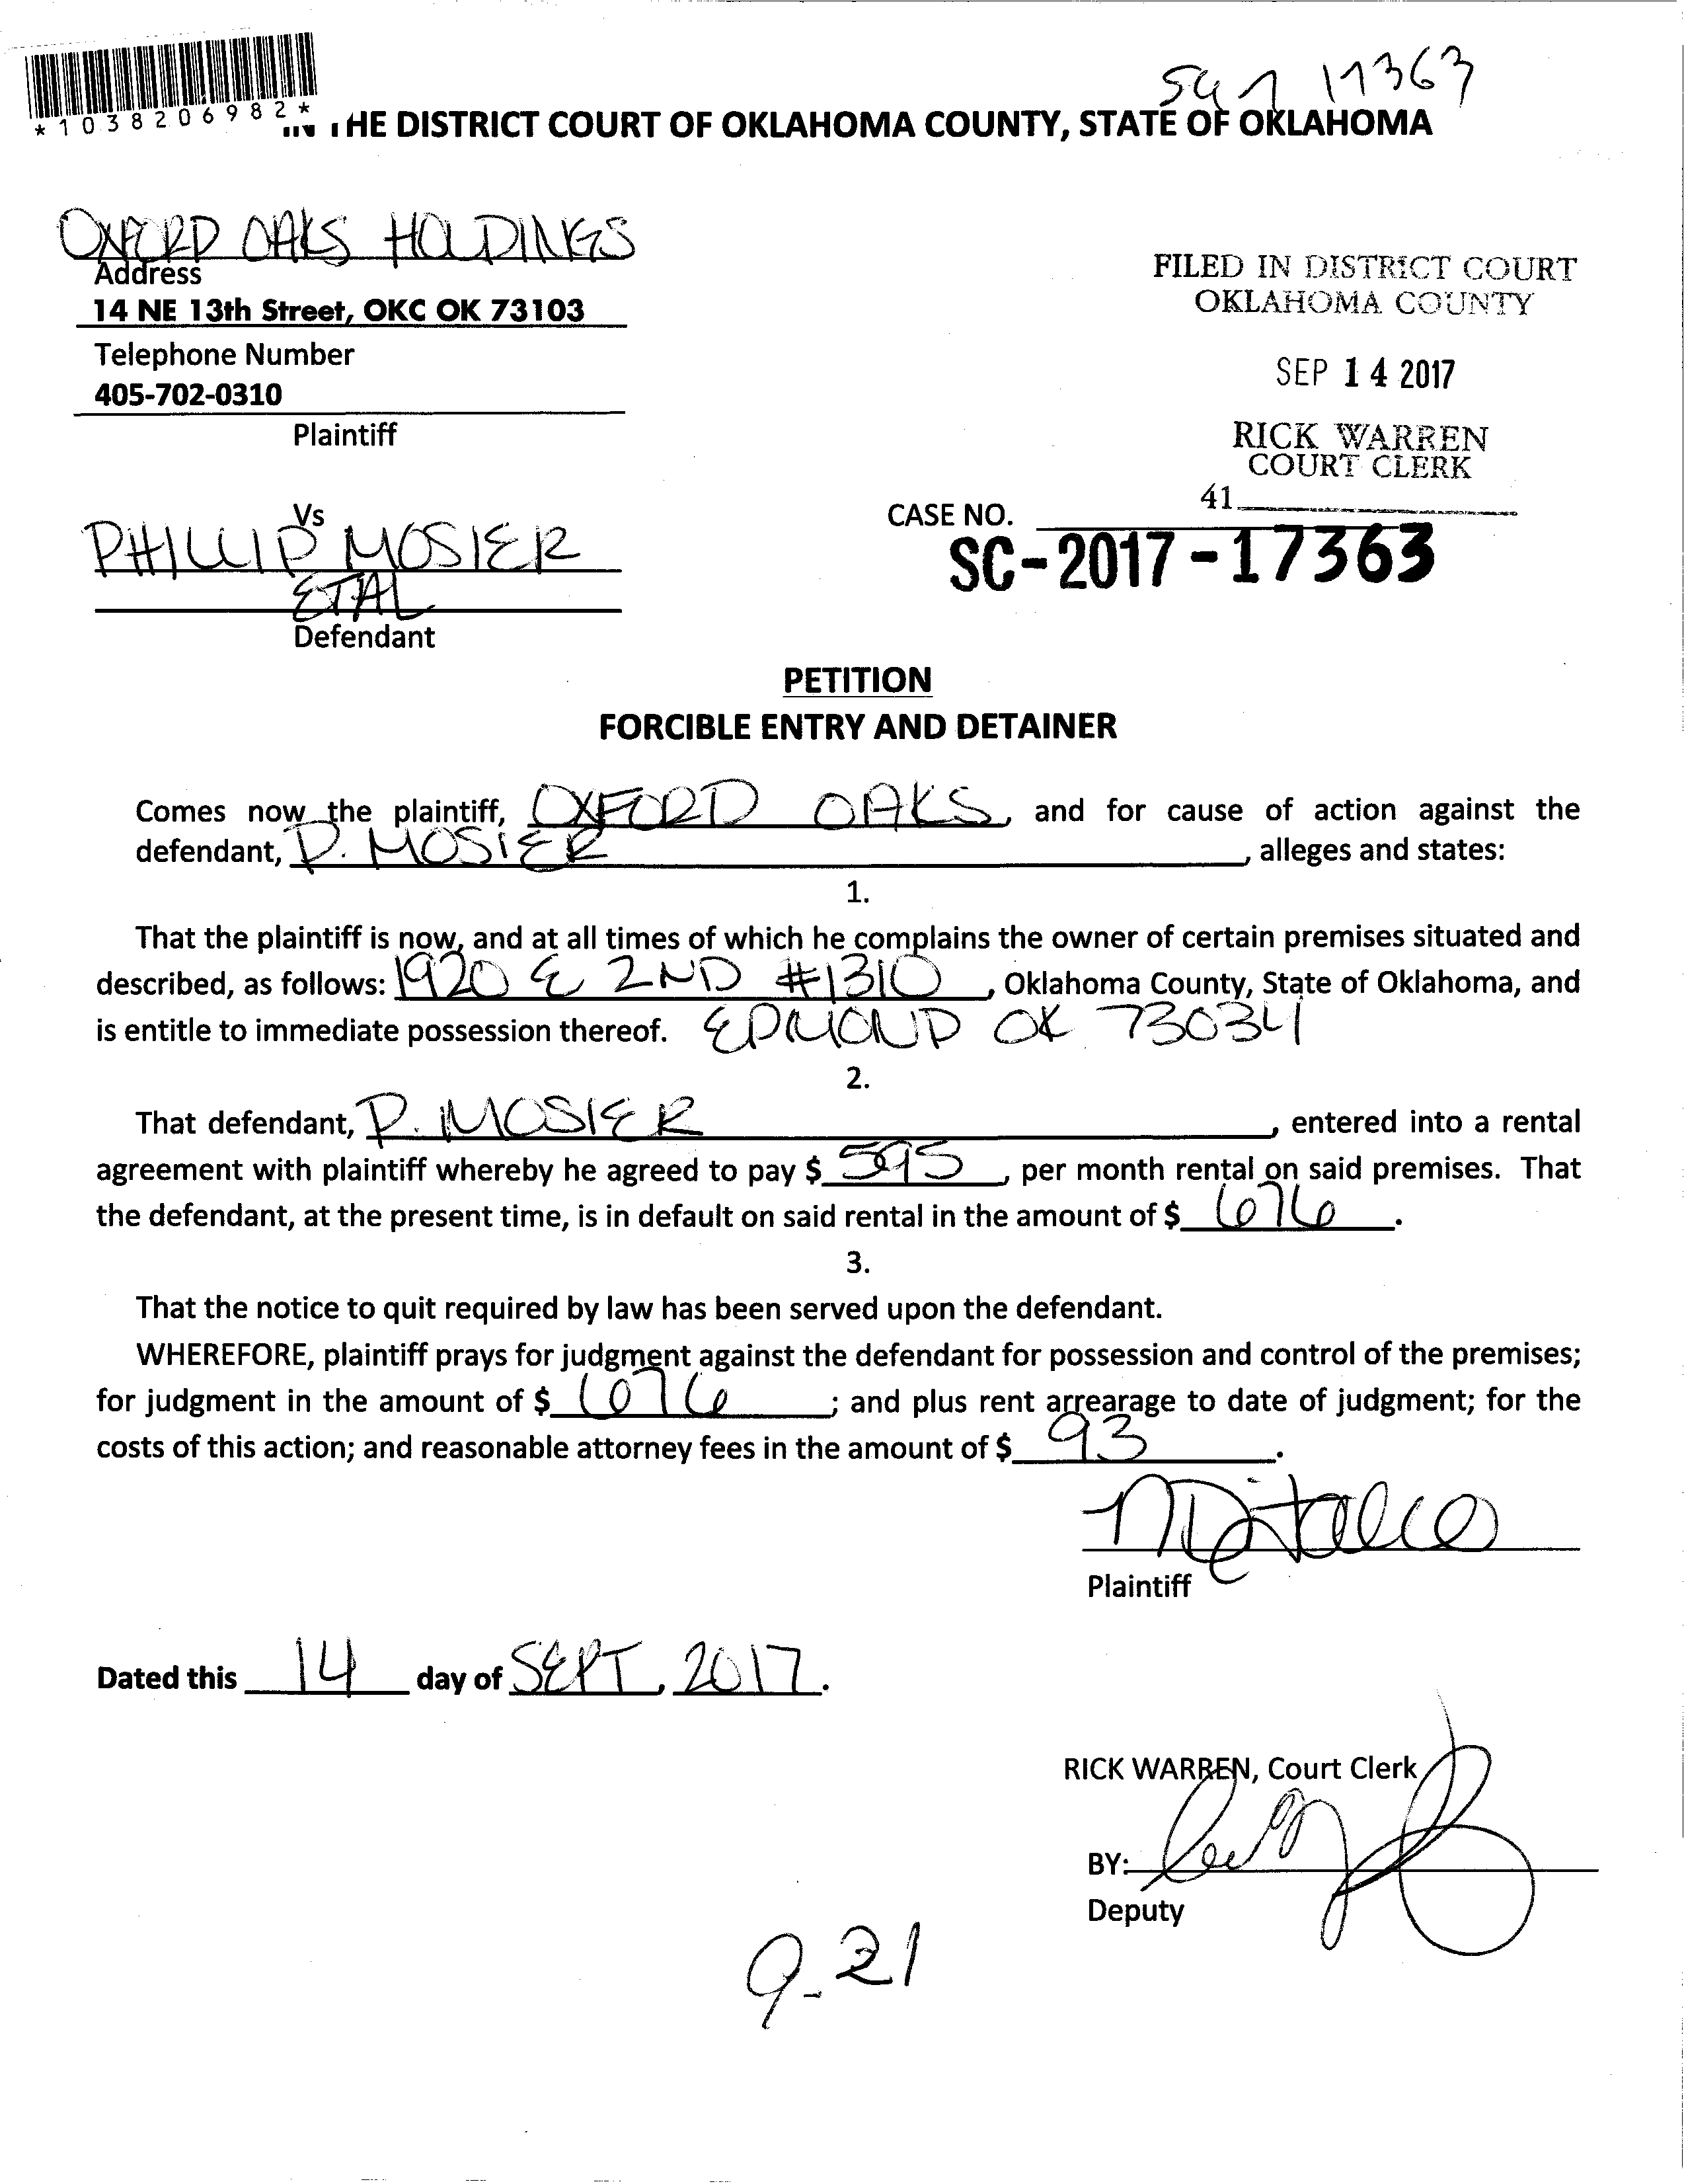 *1038206982*
17363
IN THE DISTRICT COURT OF OKLAHOMA COUNTY, STATE OF OKLAHOMA
OXFORD OAKS HOLDINGS
Address
14 NE 13th Street, OKC OK 73103
Telephone Number
405-702-0310
Plaintiff
FILED IN DISTRICT COURT
OKLAHOMA COUNTY
SEP 14 2017
RICK WARREN
COURT CLERK
41
Vs
PHILLIP MOSIER
ETAL
Defendant
CASE NO.
SC-2017-17363
PETITION
FORCIBLE ENTRY AND DETAINER
Comes now the plaintiff, OXFORD OAKS, and for cause of action against the
defendant, P. MOSIER, alleges and states:
1.
That the plaintiff is now, and at all times of which he complains the owner of certain premises situated and
described, as follows: 1920 E 2ND #1310, Oklahoma County, State of Oklahoma, and
is entitle to immediate possession thereof. EDMOND OK 73034
2.
That defendant, P. MOSIER, entered into a rental
agreement with plaintiff whereby he agreed to pay $ 595, per month rental on said premises. That
the defendant, at the present time, is in default on said rental in the amount of $ 676.
3.
That the notice to quit required by law has been served upon the defendant.
WHEREFORE, plaintiff prays for judgment against the defendant for possession and control of the premises;
for judgment in the amount of $ 676; and plus rent arrearage to date of judgment; for the
costs of this action; and reasonable attorney fees in the amount of $ 93.
Plaintiff
Dated this 14 day of SEPT, 2017.
RICK WARREN, Court Clerk
BY:
Deputy
9-21